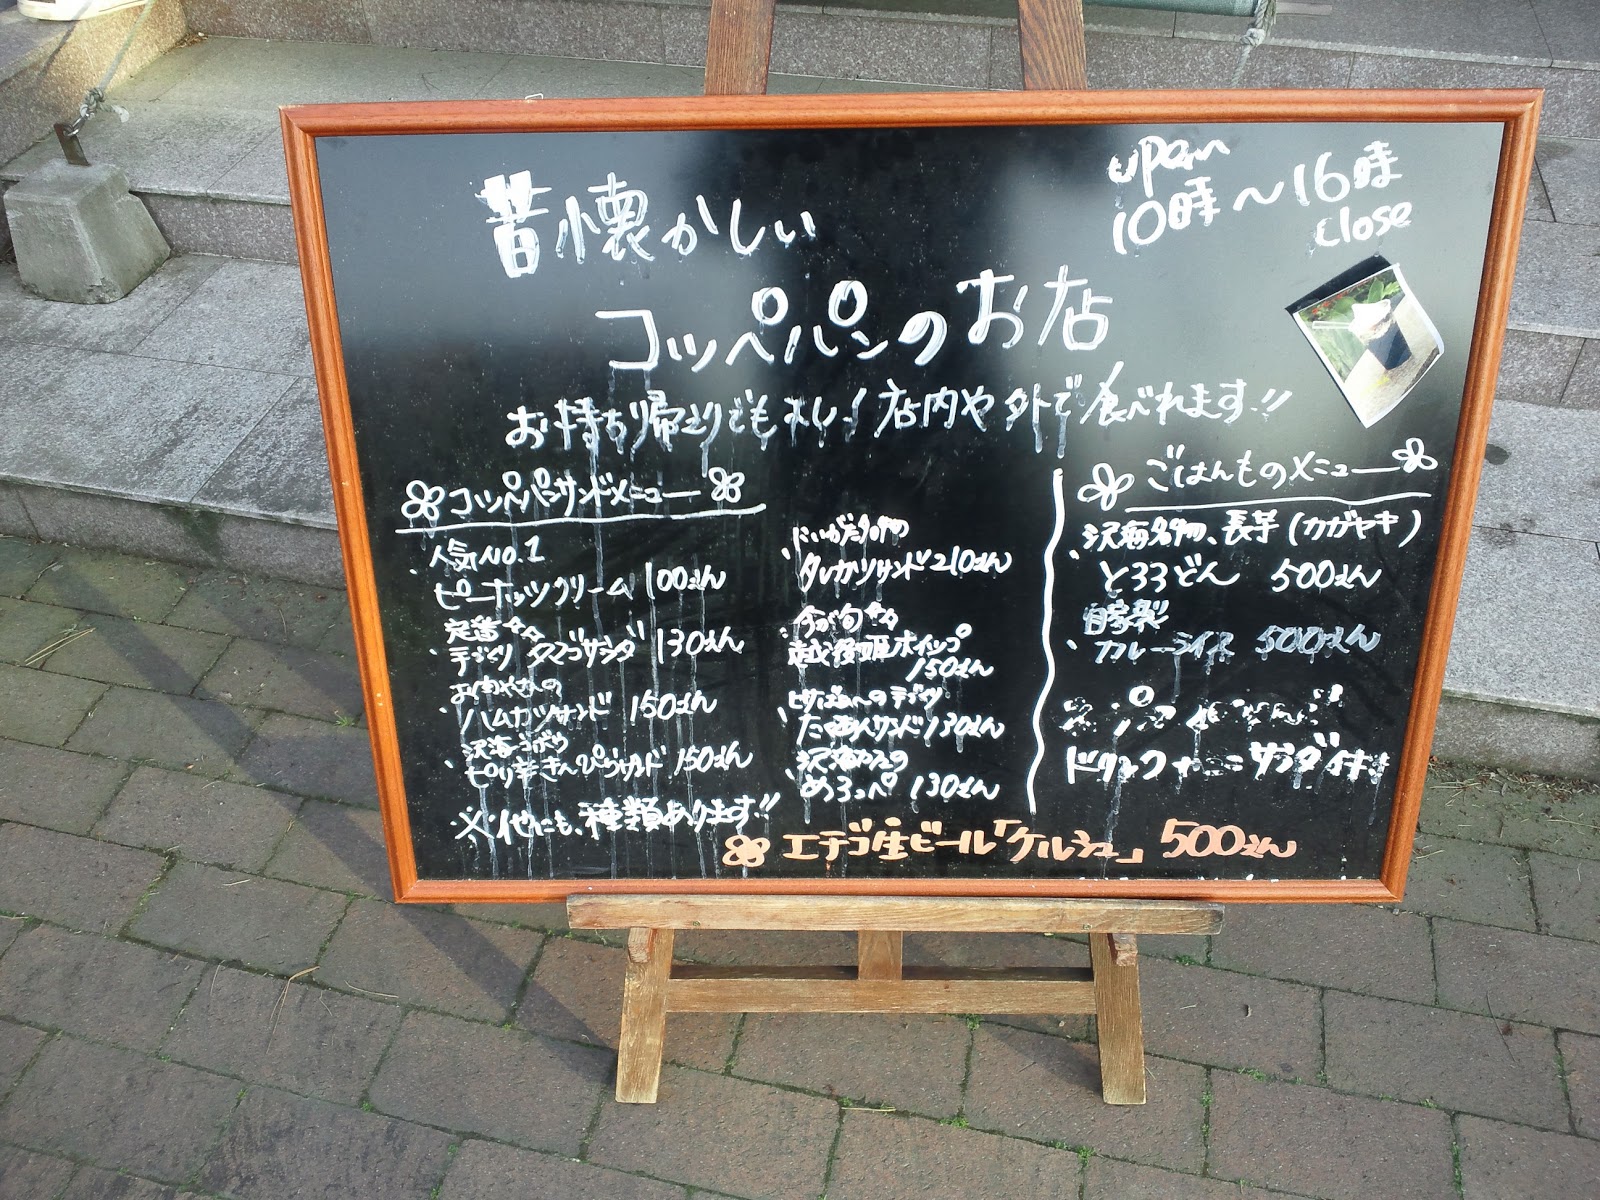 open
10時～16時
close
昔懐かしい
コッペパンのお店
お持ち帰りでもよし！店内や外で食べれます!!
コッペパンサンドメニュー
・人気NO.1
ピーナッツクリーム 100えん
定番
・手づくりタマゴサラダ 130えん
お肉やさんの
・ハムカツサンド 150えん
沢海ごぼう
・ピリ辛きんぴらサンド 150えん
※他にも、種類あります!!
・にいがた名物
タレカツサンド 210えん
・今が旬
越後姫ホイップ
150えん
ピリばぁーの手づくり
・たくあんサンド 130えん
沢海やさんの
・めろっぺ 130えん
ごはんものメニュー
沢海名物、長芋(カガヤキ)
・とろろどん 500えん
自家製
・カレーライス 500えん
ドリンク サラダ付き
エチゴ生ビール「ケルシュ」 500えん